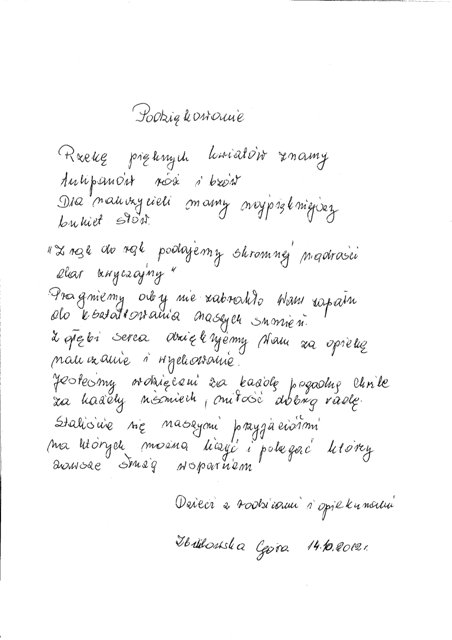 Podziękowanie
Rzekę pięknych kwiatów znamy
tulipanów róż i bzów
Dla nauczycieli mamy najpiękniejszy
bukiet słów.
"Z rąk do rąk podajemy skromnej mądrości
dar zwyczajny"
Pragniemy aby nie zabrakło Wam zapału
do kształtowania naszych sumień.
Z głębi serca dziękujemy Wam za opiekę
nauczanie i wychowanie.
Jesteśmy wdzięczni za każdą pogodną chwilę
za każdy uśmiech, miłość dobrą radę.
Staliście się naszymi przyjaciółmi
na których można liczyć i polegać którzy
zawsze służą wsparciem
Dzieci z rodzicami i opiekunami
Zbulowska Góra 14.10.2012r.